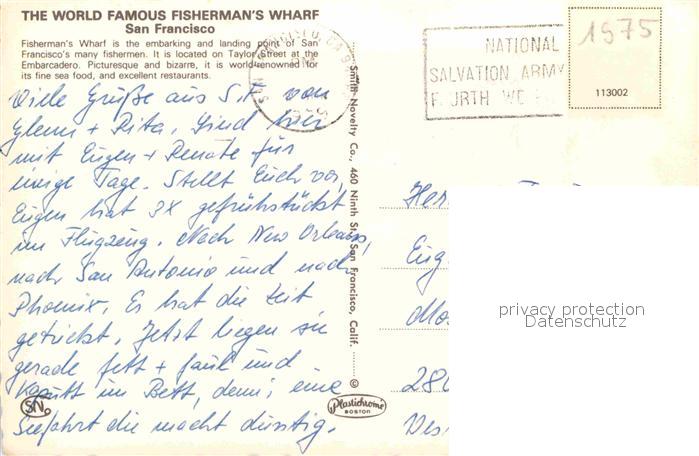 THE WORLD FAMOUS FISHERMAN'S WHARF
San Francisco
Fisherman's Wharf is the embarking and landing point of San
Francisco's many fishermen. It is located on Taylor Street at the
Embarcadero. Picturesque and bizarre, it is world-renowned for
its fine sea food, and excellent restaurants.
Viele Grüße aus S.F. von
Glenn + Rita. Sind hier
mit Eugen + Renate für
einige Tage. Stellt Euch vor,
Eugen hat 3X gefrühstückt
im Flugzeug. Nach New Orleans,
nach San Antonio und nach
Phoenix. Es hat die Zeit
getückt. Jetzt liegen sie
gerade fett + faul und
Kaputt im Bett, denn, eine
Seefahrt die macht durstig.
SN
Smith Novelty Co., 460 Ninth St., San Francisco, Calif.
©
Plastichrome
BOSTON
NATIONAL
SALVATION ARMY
1975
113002
Her
Eug
Mos
280
privacy protection
Datenschutz